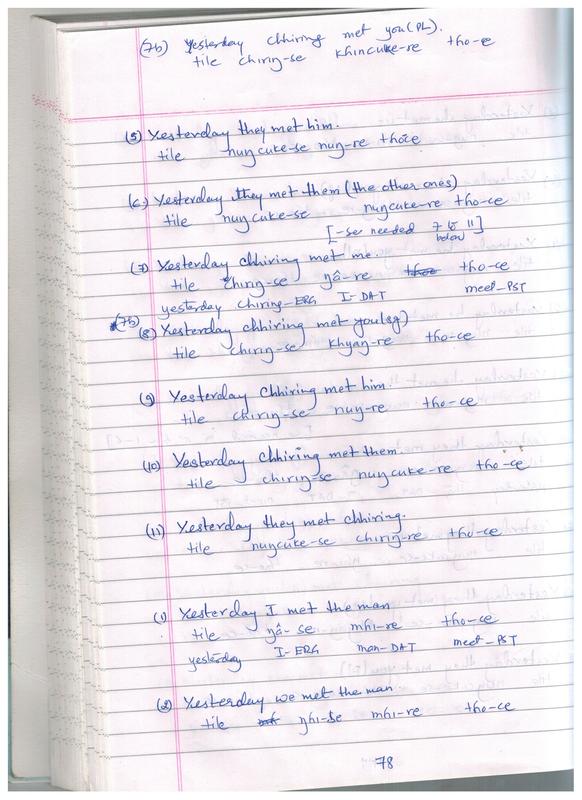 (7b) Yesterday chhiring met you (PL).
tile chiriŋ-se khincuke-re tho-ce
(5) Yesterday they met him.
tile nuŋcuke-se nuŋ-re thoce
(6) Yesterday they met them (the other ones)
tile nuŋcuke-se nuŋcuke-re tho-ce
[-se needed 7 to 11 below]
(7) Yesterday chhiring met me.
tile chiriŋ-se ŋâ-re tho-ce
yesterday chiring-ERG I-DAT meet-PST
(7b)
(8) Yesterday chhiring met you(sg)
tile chiriŋ-se khyaŋ-re tho-ce
(9) Yesterday chhiring met him.
tile chiriŋ-se nuŋ-re tho-ce
(10) Yesterday chhiring met them.
tile chiriŋ-se nuŋcuke-re tho-ce
(11) Yesterday they met chhiring.
tile nuŋcuke-se chiriŋ-re tho-ce
(1) Yesterday I met the man
tile ŋâ-se mhi-re tho-ce
yesterday I-ERG man-DAT meet-PST
(2) Yesterday we met the man
tile ŋhi-se mhi-re tho-ce
78